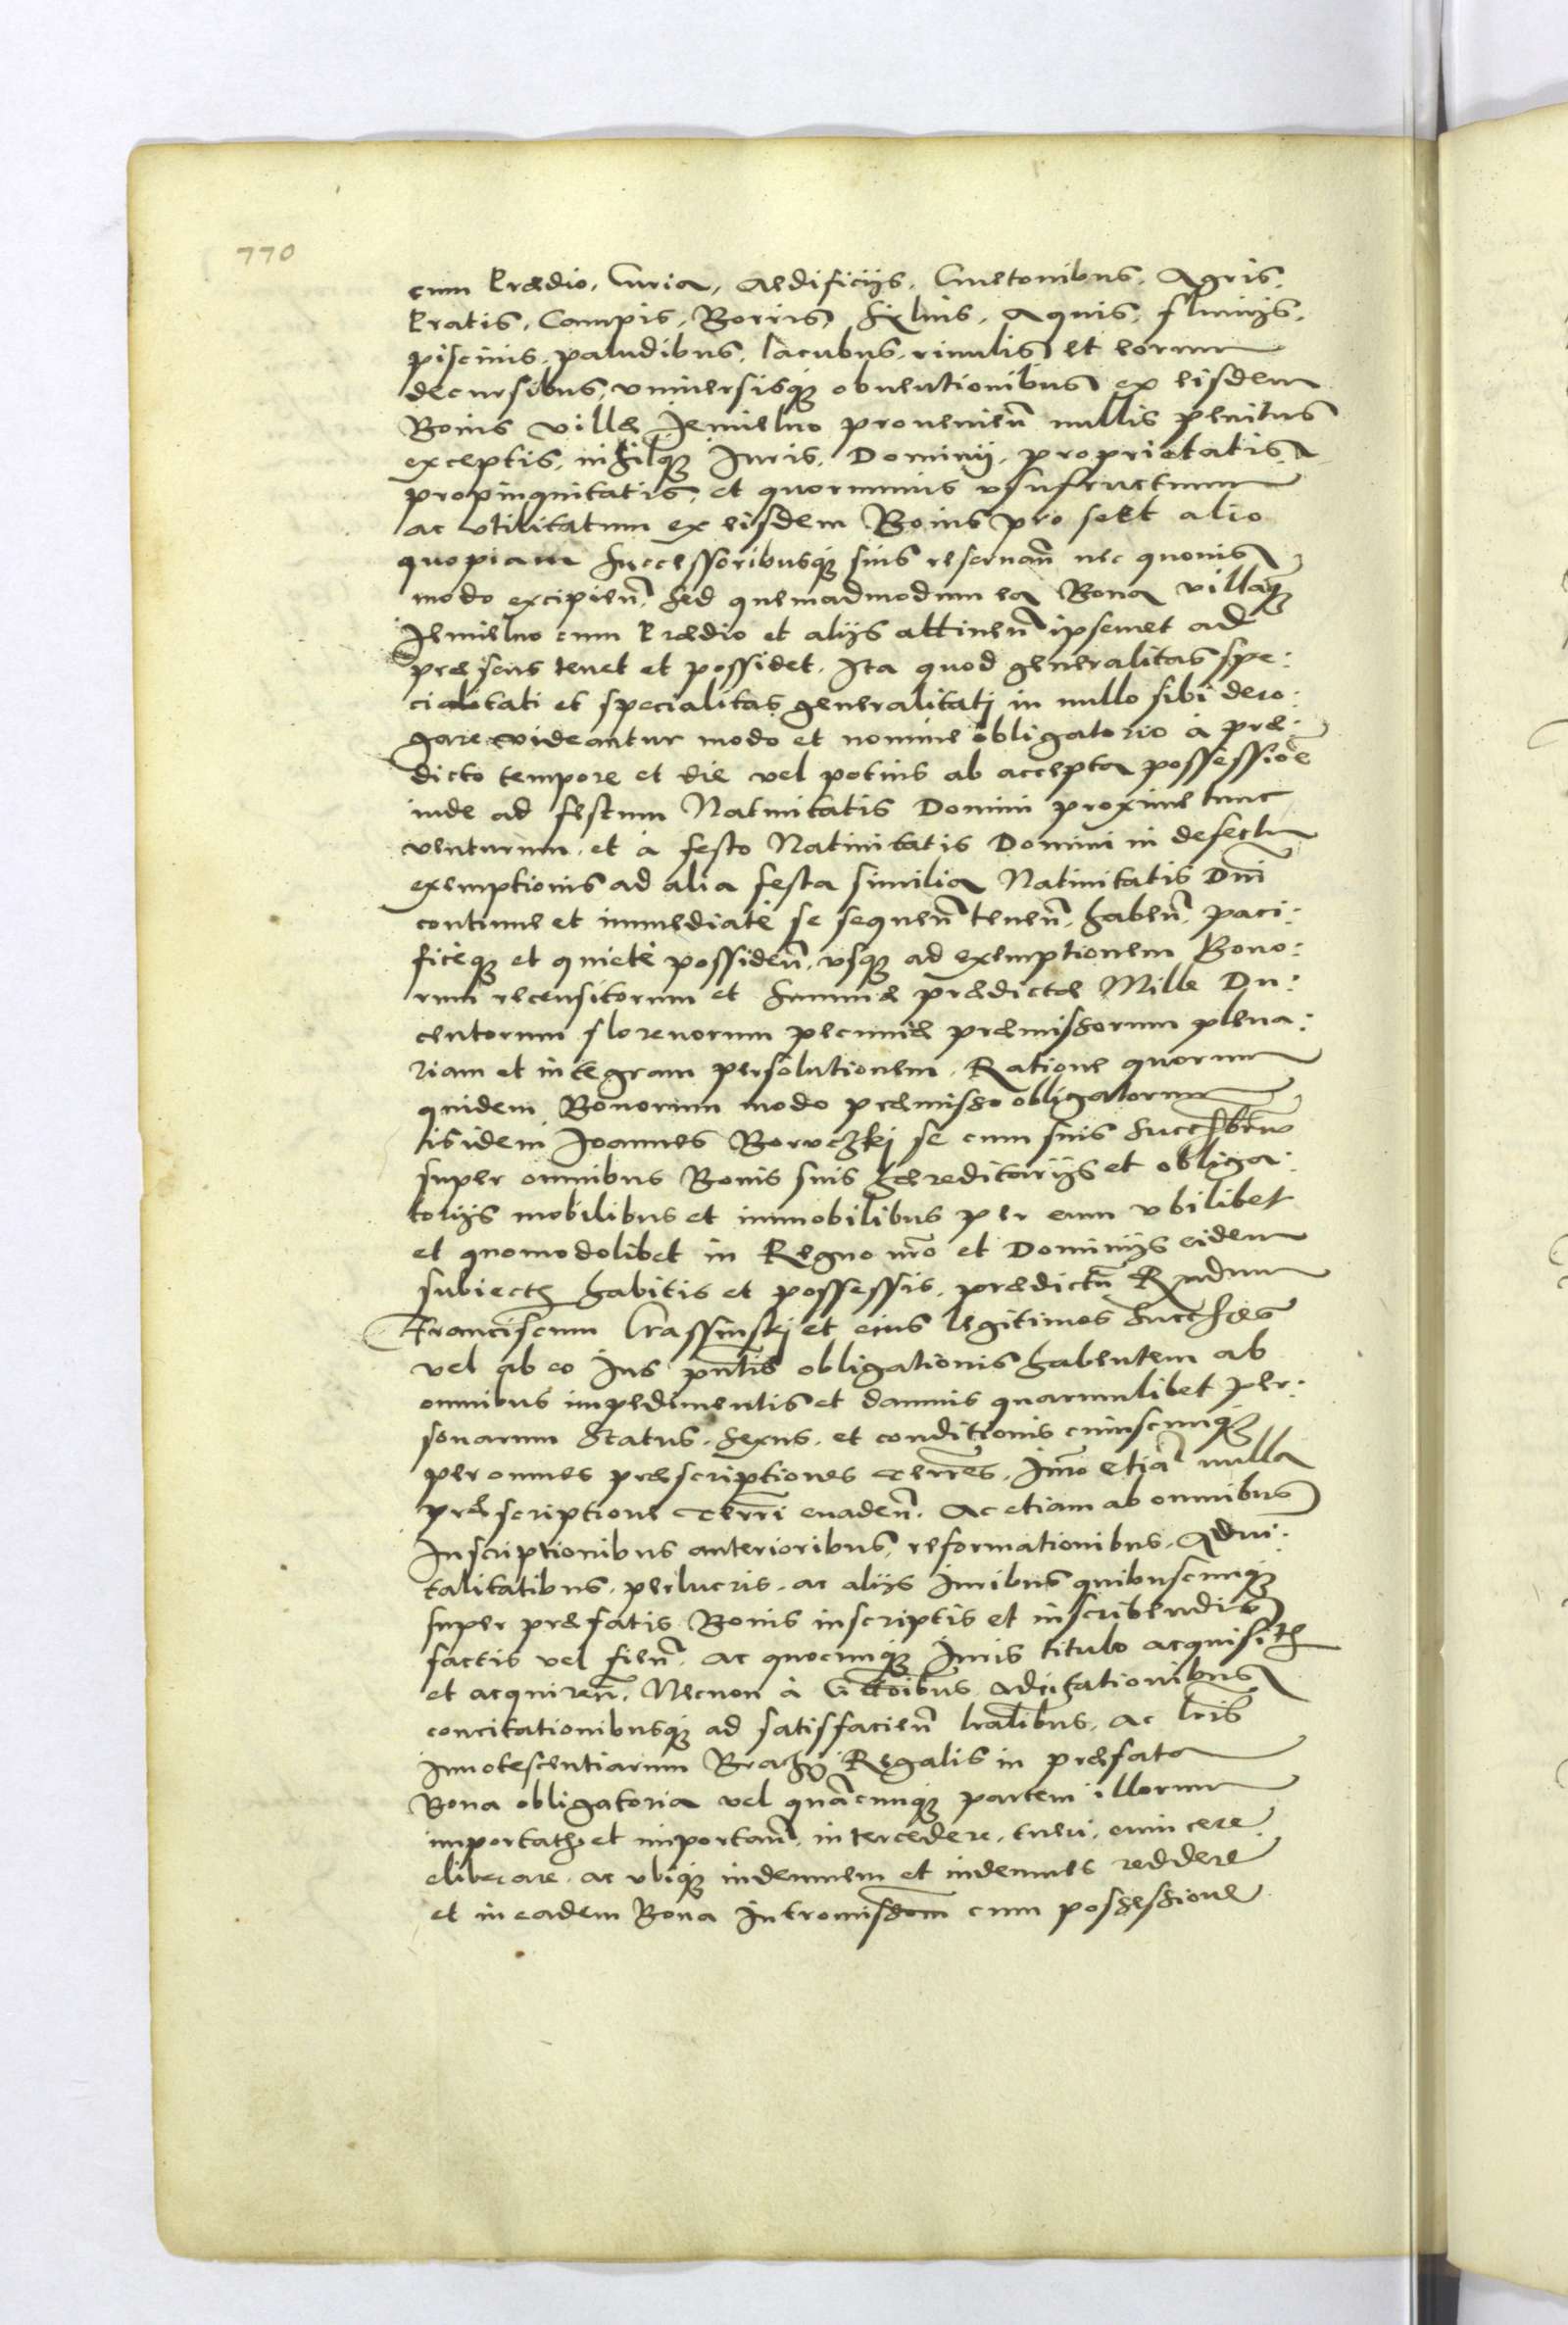 770
cum Prædio, Curia, Aedificijs, Cmetonibus, Agris,
Pratis, Campis, Borris, Sylvis, Aquis, fluuijs,
piscinis, paludibus, lacubus, riuulis et eorum
decursibus, vniuersisq obuentionibus ex eisdem
Bonis villæ Jemielno prouenien nullis penitus
exceptis, nihilq Juris, Dominij, proprietatis,
propinquitatis, et quorumuis vsufructuum
ac vtilitatum ex eisdem Bonis pro se et alio
quopiam Successoribusq suis reseruan nec quouis
modo excipien, Sed quemadmodum ea Bona villaq
Jemielno cum Prædio et alijs attinen ipsemet ad
præsens tenet et possidet. Ita quod generalitas spe:
cialitati et specialitas generalitati in nullo sibi dero:
gare videantur modo et nomine obligatorio à præ:
dicto tempore et die vel potius ab accepta possessioe
inde ad festum Natiuitatis Domini proxime tunc
venturum, et à festo Natiuitatis Domini in defectu
exemptionis ad alia festa similia Natiuitatis Dni
continue et immediatè se sequen tenen, haben, paci:
ficèq et quietè possiden, vsq ad exemptionem Bono:
rum recensitorum et Summæ prædictæ Mille Du:
centorum florenorum pecuniæ præmissorum plena:
riam et integram persolutionem. Ratione quorum
quidem Bonorum modo præmisso obligatorum
is idem Joannes Boruczkj se cum suis
super omnibus Bonis suis hæreditarijs et obliga:
torijs mobilibus et immobilibus per eum vbilibet
et quomodolibet in Regno nro et Dominijs eidem
subiectis habitis et possessis, prædictu Rndum
Franciscum Crassinskj et eius legitimos
vel ab eo Jus pntis obligationis habentem ab
omnibus impedimentis et damnis quarumlibet per:
sonarum Status, Sexus, et conditionis cuiuscunq
per omnes præscriptiones terres, Imo etia nulla
præscriptione terrri euaden. Ac etiam ab omnibus
Inscriptionibus anterioribus, reformationibus, Adui:
talitatibus, perlucris, ac alijs Juribus quibuscunq
super præfatis Bonis inscriptis et inscribendis
factis vel fien, ac quocunq Juris titulo acquisitis
et acquiren, Necnon à adcitationibus
concitationibusq ad satisfacien lralibus, ac lris
Innotescentiarum Brachij Regalis in præfata
Bona obligatoria vel quacunq partem illorum
importatis et importan, intercedere, tueri, euincere
eliberare, ac vbiq indemnem et indemnes reddere
et in eadem Bona Intromissom cum possessione